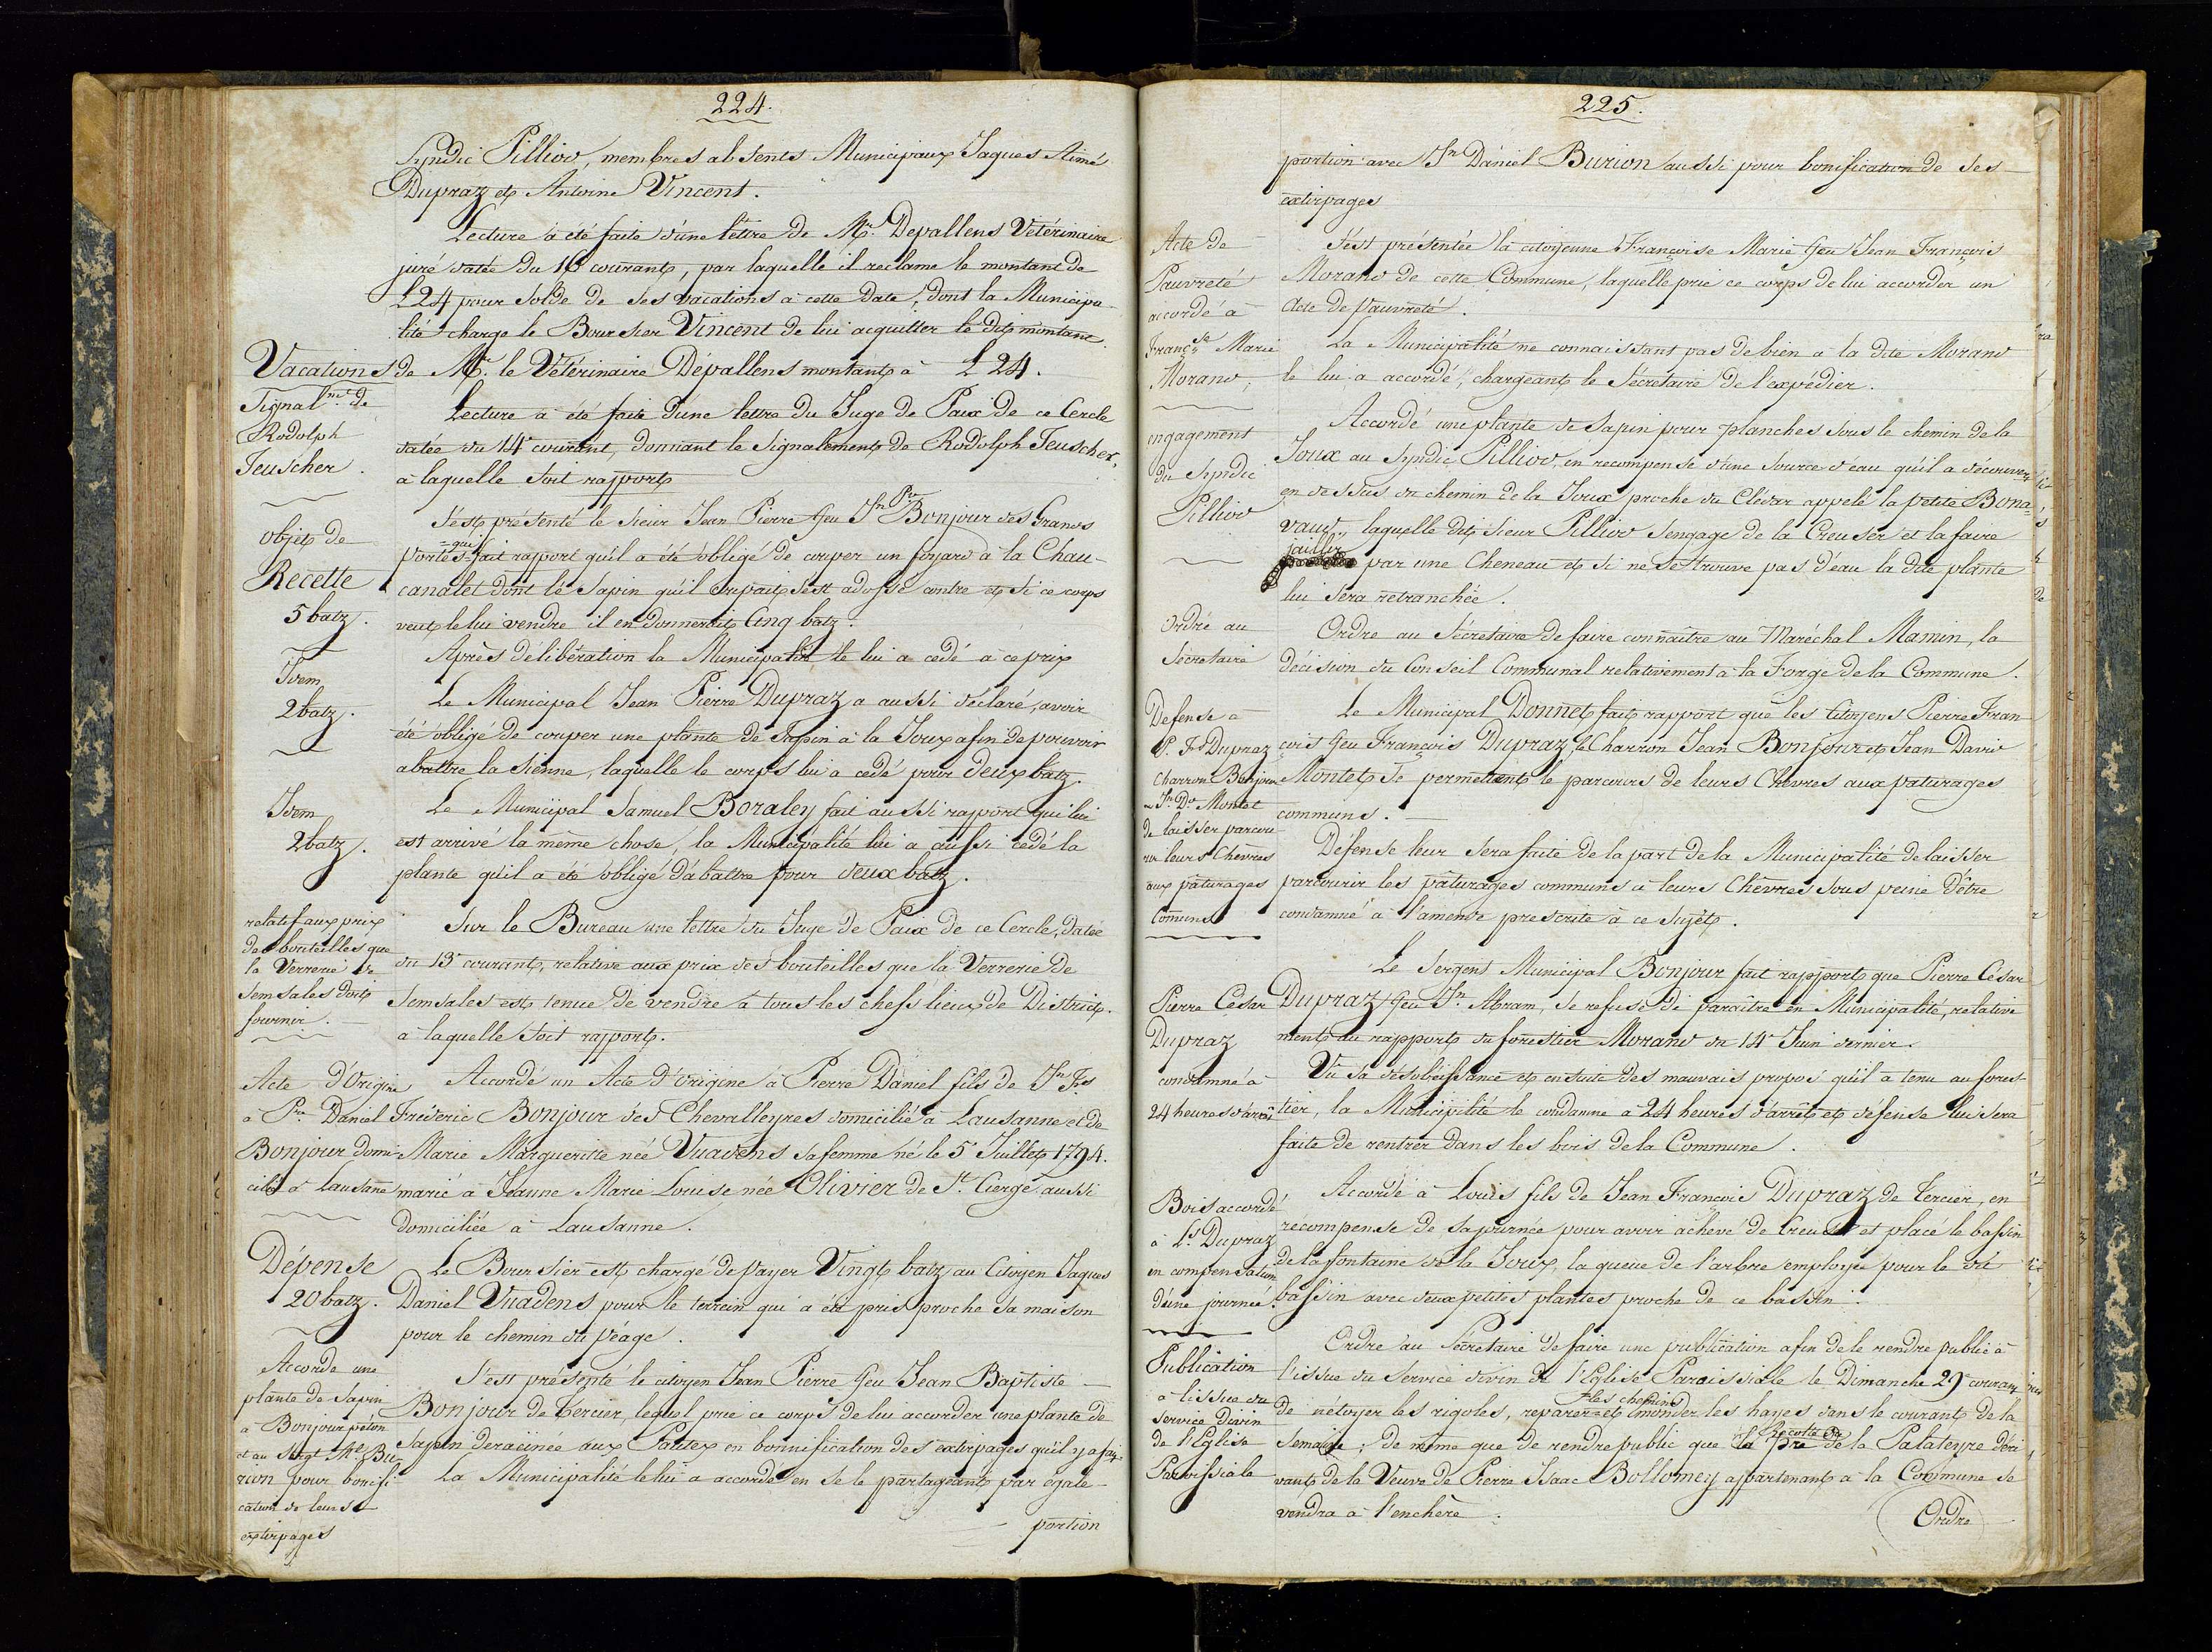 224.
Syndic Pilliod, membres absents Municipaux Jaques Aimé
Dupraz et Antoine Vincent.
Lecture a été faite d'une lettre de Mr. Depallens Vétérinaire
juré datée du 16 courant, par laquelle il reclame le montant de
L24 pour solde de ses vacations à cette date, dont la Municipa-
lité charge le Boursier Vincent de lui acquitter le dit montant.
Vacations de Mr. le Vétérinaire Dépallens montant à L 24.
Signalmt. de
Rodolph
Teuscher.
Lecture a été faite d'une lettre du Juge de Paix de ce Cercle
datée du 14e courant, donnant le Signalement de Rodolph Teuscher,
à laquelle soit rapport
objet de
Recette
5 batz.
S'est présenté le sieur Jean Pierre feu Jn Pre Bonjour des Grands
Portes =qui= fait rapport qu'il a été obligé de couper un foyard à la Chau-
canalet dont le sapin qu'il coupait s'est adossé contre et si ce corps
veut le lui vendre il en donneroit Cinq batz.
Après delibération la Municipalité le lui a cedé à ce prix
Idem
2 batz.
Le Municipal Jean Pierre Dupraz a aussi déclaré, avoir
été obligé de couper une plante de Sapin à la Joux afin de pouvoir
abattre la sienne, laquelle le corps lui a cedé pour deux batz.
Idem
2 batz.
Le Municipal Samuel Boraley fait aussi rapport qu'il lui
est arrivé la même chose, la Municipalité lui a aussi cedé la
plante qu'il a été obligé d'abattre pour deux batz.
relatif aux prix
des bouteilles que
la Verrerie de
Semsales doit
fournir.
Sur le Bureau une lettre du Juge de Paix de ce Cercle, datée
du 13e courant, relative aux prix des bouteilles que la Verrerie de
Semsales est tenue de vendre à tous les chefs lieux de District.
à laquelle soit rapport.
Acte d'Origine
à Pre Daniel
Bonjour domi-
cilié à Lausanne
Accordé un Acte d'origine à Pierre Daniel fils de Jn Fs
Fréderic Bonjour des Chevalleyres domicilié à Lausanne et de
Marie Margueritte née Vuadens sa femme né le 5e Juillet 1794.
marié à Jeanne Marie Louise née Olivier de St. Cierge aussi
domiciliée à Lausanne.
Dépense
20 batz.
Le Boursier est chargé de payer Vingt batz au Citoyen Jaques
Daniel Vuadens pour le terrein qui a été pris proche sa maison
pour le chemin du péage.
Accorde une
plante de Sapin
à Bonjour piéton
et au Sergt Mle Bu-
rion pour bonifi
cation de leurs
extirpages
S'est présenté le citoyen Jean Pierre feu Jean Baptiste
Bonjour de Tercier, lequel prie ce corps de lui accorder une plante de
Sapin deracinée aux Pautex en bonnification des extirpages qu'il y a fait
La Municipalité le lui a accordé en se le partageant par égale
portion
225.
portion avec Jn Daniel Burion aussi pour bonification de ses
extirpages
Acte de
Pauvreté
accordé à
Françse Marie
Morand,
S'est présentée la citoyenne Françoise Marie feu Jean François
Morand de cette Commune, laquelle prie ce corps de lui accorder un
Acte de Pauvreté.
La Municipalité ne connaissant pas de bien à la dite Morand
le lui a accordé, chargeant le Sécretaire de l'expédier.
engagement
du Syndic
Pilliod
Accordé une plante de sapin pour planches sous le chemin de la
Joux au Syndic Pilliod, en recompense d'une source d'eau qu'il a découvert
en dessus du chemin de la Joux proche du Clédar appelé la petite Bona-
vaud, laquelle dit sieur Pilliod s'engage de la Creuser et la faire
jaillir par une Cheneau et si ne se trouve pas d'eau la dite plante
lui sera retranchée.
Ordre au
Sécretaire
Ordre au Sécretaire de faire connaître au Maréchal Mamin, la
décision du Conseil Communal relativement à la Forge de la Commune.
Défense à
P. Fs Dupraz
Charron Bonjour
Jn Dd Montet
de laisser parcou-
rir leurs Chèvres
aux pâturages
Comuns
Le Municipal Donnet fait rapport que les Citoyens Pierre Fran
çois feu François Dupraz, le Charron Jean Bonjour et Jean David
Montet se permettent le parcours de leurs Chevres aux paturages
communs.
Défense leur sera faite de la part de la Municipalité de laisser
parcourir les pâturages communs à leurs Chèvres sous peine d'être
condamné à l'amende prescrite à ce sujet.
Pierre César
Dupraz
condamné à
24 heures d'arrêt
Le Sergent Municipal Bonjour fait rapport que Pierre César
Dupraz feu Jn Abram, se refuse de paraître en Municipalité, relative
ment au rapport du forestier Morand du 14e Juin dernier.
Vu sa désobéissance et ensuite des mauvais propos qu'il a tenu au fores-
tier, la Municipilité le condamne à 24 heures d'arrêt et défense lui sera
faite de rentrer dans les bois de la Commune.
Bois accordé
à Ls Dupraz
en compensation
d'une journée.
Accordé à Louis fils de Jean François Dupraz de Tercier, en
récompense de sa journée pour avoir achevé de Creuser et placé le bassin
de la fontaine de la Joux, la queue de l'arbre employée pour le dit
bassin avec deux petites plantes proche de ce bassin.
Publication
à l'issue du
Service Divin
de l'Eglise
Paroissiale
Ordre au Sécretaire de faire une publication afin de le rendre public à
l'issue du Service divin de l'Eglise Paroissiale le Dimanche 29e courant
de nétoyer les rigoles, reparer les chemins et émonder les hayes dans le courant de la
semaine; de même que de rendre public que la recolte du pré de la Palateyre déri
vant de la Veuve de Pierre Isaac Bollomey appartenant à la Commune se
vendra à l'enchère.
Ordre